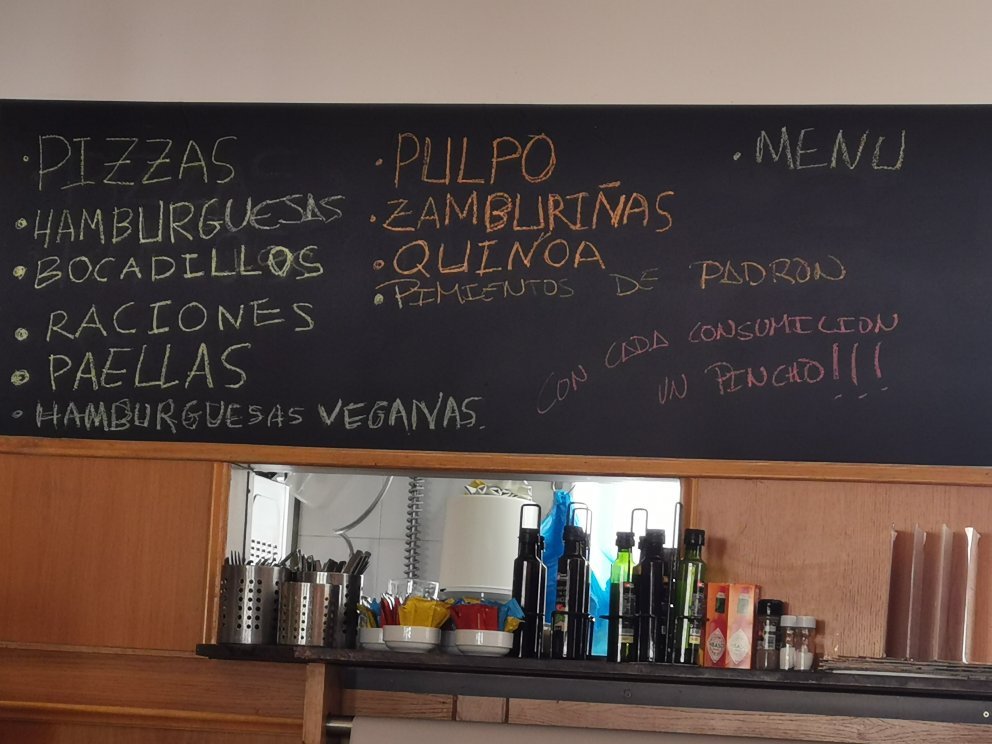 · PIZZAS
· HAMBURGUESAS
· BOCADILLOS
· RACIONES
· PAELLAS
· HAMBURGUESAS VEGANAS.
· PULPO
· ZAMBURIÑAS
· QUINOA
· PIMIENTOS DE PADRON
· MENU
CON CADA CONSUMICION
UN PINCHO!!!